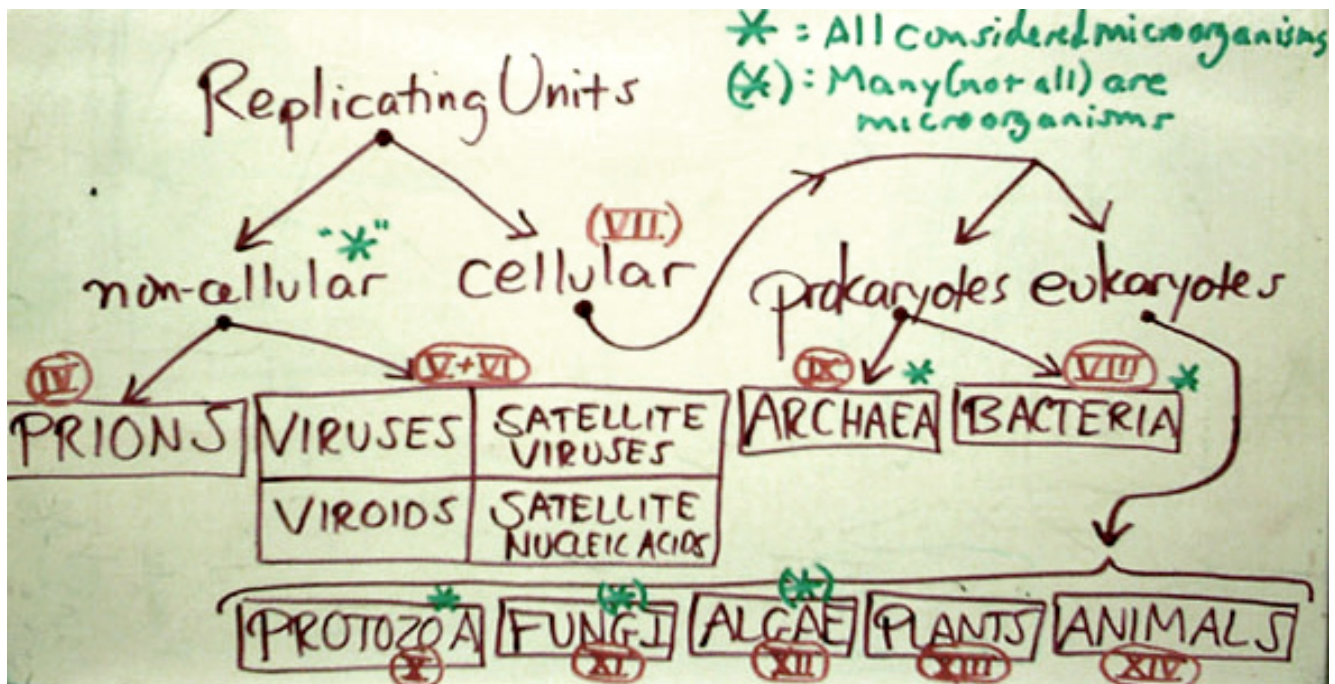 * = All considered microorganisms
(*) = Many (not all) are
microorganisms
Replicating Units
non-cellular "*"
cellular (VII)
prokaryotes eukaryotes
IV
PRIONS
V+VI
VIRUSES
SATELLITE
VIRUSES
VIROIDS
SATELLITE
NUCLEIC ACIDS
IX *
ARCHAEA
VIII *
BACTERIA
*
PROTOZOA
X
(*)
FUNGI
XI
(*)
ALGAE
XII
PLANTS
XIII
ANIMALS
XIV